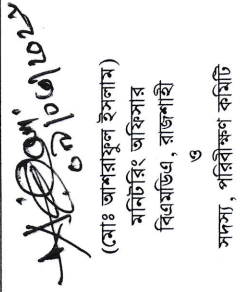 ((মোঃ আশরাফুল ইসলাম)
মনিটরিং অফিসার
বিএমডিএ, রাজশাহী
ও
সদস্য, পরিবীক্ষণ কমিটি